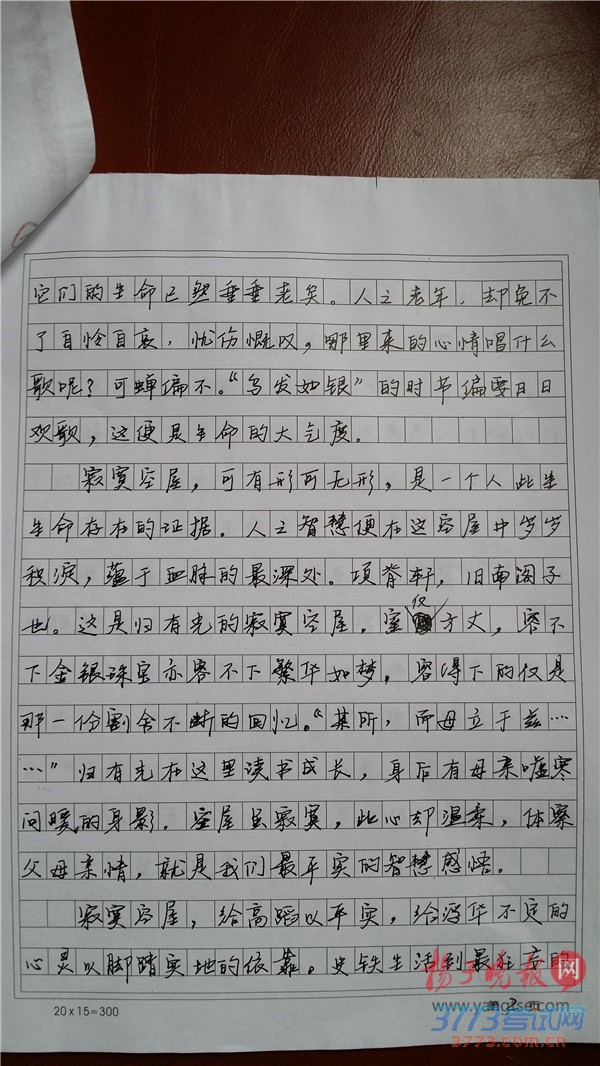 它们的生命已然垂垂老矣。人之老年，却免不
了自怜自哀，忧伤慨叹，哪里来的心情唱什么
歌呢？可蝉偏不。“乌发如银”的时节偏要日日
欢歌，这便是生命的大气度。
寂寞空屋，可有形可无形，是一个人此生
生命存在的证据。人之智慧便在这空屋中岁岁
积淀，蕴于血脉的最深处。项脊轩，旧南阁子
也。这是归有光的寂寞空屋。室仅方丈，容不
下金银珠宝亦容不下繁华如梦，容得下的仅是
那一份割舍不断的回忆。“某所，而母立于兹……
……”归有光在这里读书成长，身后有母亲嘘寒
问暖的身影。空屋虽寂寞，此心却温柔，体察
父母亲情，就是我们最平实的智慧感悟。
寂寞空屋，给高蹈以平实，给浮华不定的
心灵以脚踏实地的依靠。史铁生活到最狂妄的
扬子晚报网
www.yangtse.com
20×15=300
第2页
3773考试网
3773.com.cn